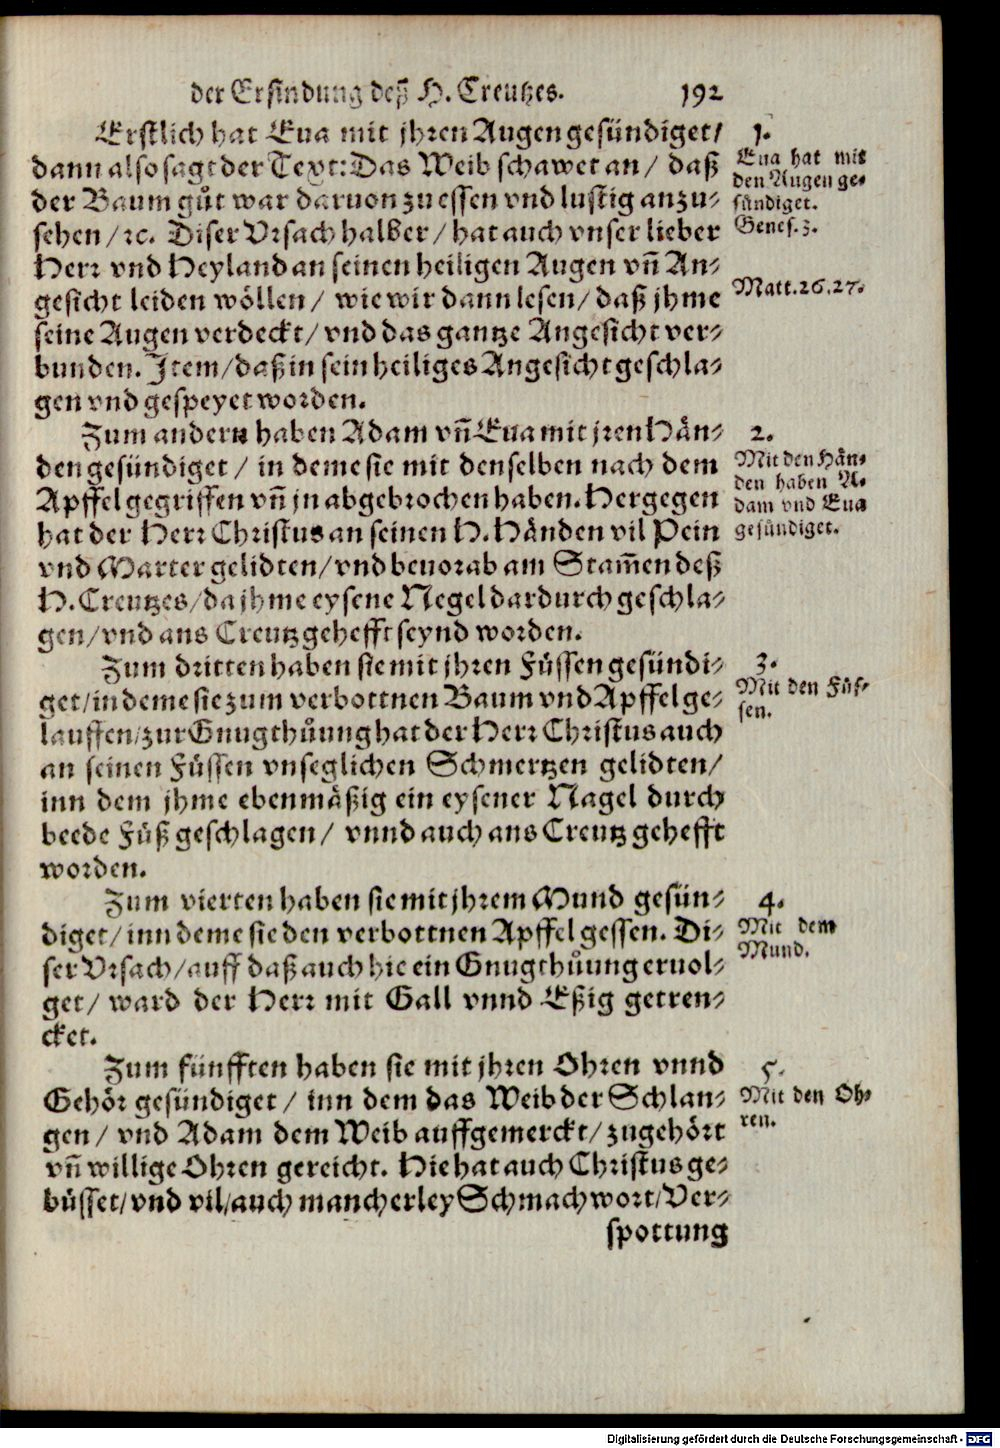 der Erfindung deß H. Creutzes. 192
Erstlich hat Eua mit jhren Augen gesündiget/
dann also sagt der Text: Das Weib schawet an / daß
der Baum gůt war daruon zu essen vnd lustig anzu-
sehen / ꝛc. Diser Vrsach halber / hat auch vnser lieber
Herr vnd Heyland an seinen heiligen Augen vñ An-
gesicht leiden wöllen / wie wir dann lesen / daß jhme
seine Augen verdeckt / vnd das gantze Angesicht ver-
bunden. Jtem / daß in sein heiliges Angesicht geschla-
gen vnd gespeyet worden.
1.
Eua hat mit
den Augen ge-
sündiget.
Genes. 3.
Matt. 26. 27.
Zum andern haben Adam vñ Eua mit jren Hän-
den gesündiget / in deme sie mit denselben nach dem
Apffel gegriffen vñ jn abgebrochen haben. Hergegen
hat der Herr Christus an seinen H. Händen vil Pein
vnd Marter gelidten / vnd beuorab am Stam̃en deß
H. Creutzes / da jhme eysene Negel dardurch geschla-
gen / vnd ans Creutz gehefft seynd worden.
2.
Mit den Hän-
den haben A-
dam vnd Eua
gesündiget.
Zum dritten haben sie mit jhren Füssen gesündi-
get / in deme sie zum verbottnen Baum vnd Apffel ge-
lauffen / zur Gnugthůung hat der Herr Christus auch
an seinen Füssen vnseglichen Schmertzen gelidten /
inn dem jhme ebenmäßig ein eysener Nagel durch
beede Füß geschlagen / vnnd auch ans Creutz gehefft
worden.
3.
Mit den Füs-
sen.
Zum vierten haben sie mit jhrem Mund gesün-
diget / inn deme sie den verbottnen Apffel gessen. Di-
ser Vrsach / auff daß auch hie ein Gnugthůung eruol-
get / ward der Herr mit Gall vnnd Eßig getren-
cket.
4.
Mit dem
Mund.
Zum fünfften haben sie mit jhren Ohren vnnd
Gehör gesündiget / inn dem das Weib der Schlan-
gen / vnd Adam dem Weib auffgemerckt / zugehört
vñ willige Ohren gereicht. Hie hat auch Christus ge-
büsset / vnd vil / auch mancherley Schmachwort / Ver-
spottung
5.
Mit den Oh-
ren.
Digitalisierung gefördert durch die Deutsche Forschungsgemeinschaft - DFG